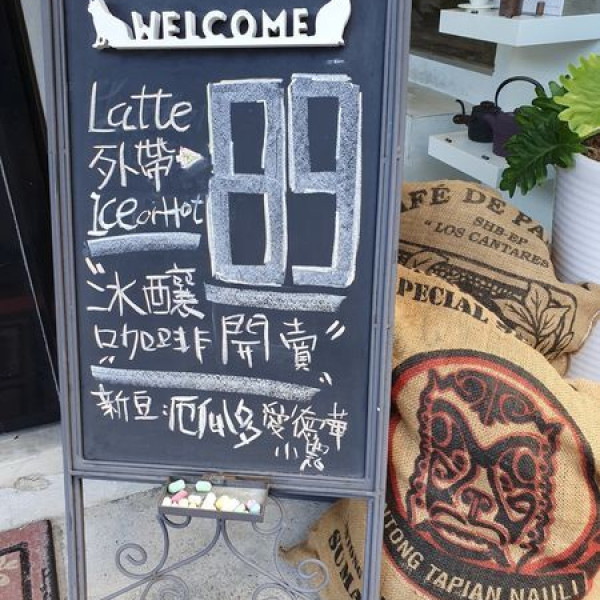 WELCOME
Latte
外帶
Ice or Hot
89
"冰釀
咖啡開賣"
"新豆:厄瓜多愛德華"
小農
CAFÉ DE PA
SHB-EP
"LOS CANTARES
SPECIAL
SUMA
NTONG TAPIAN NAULI